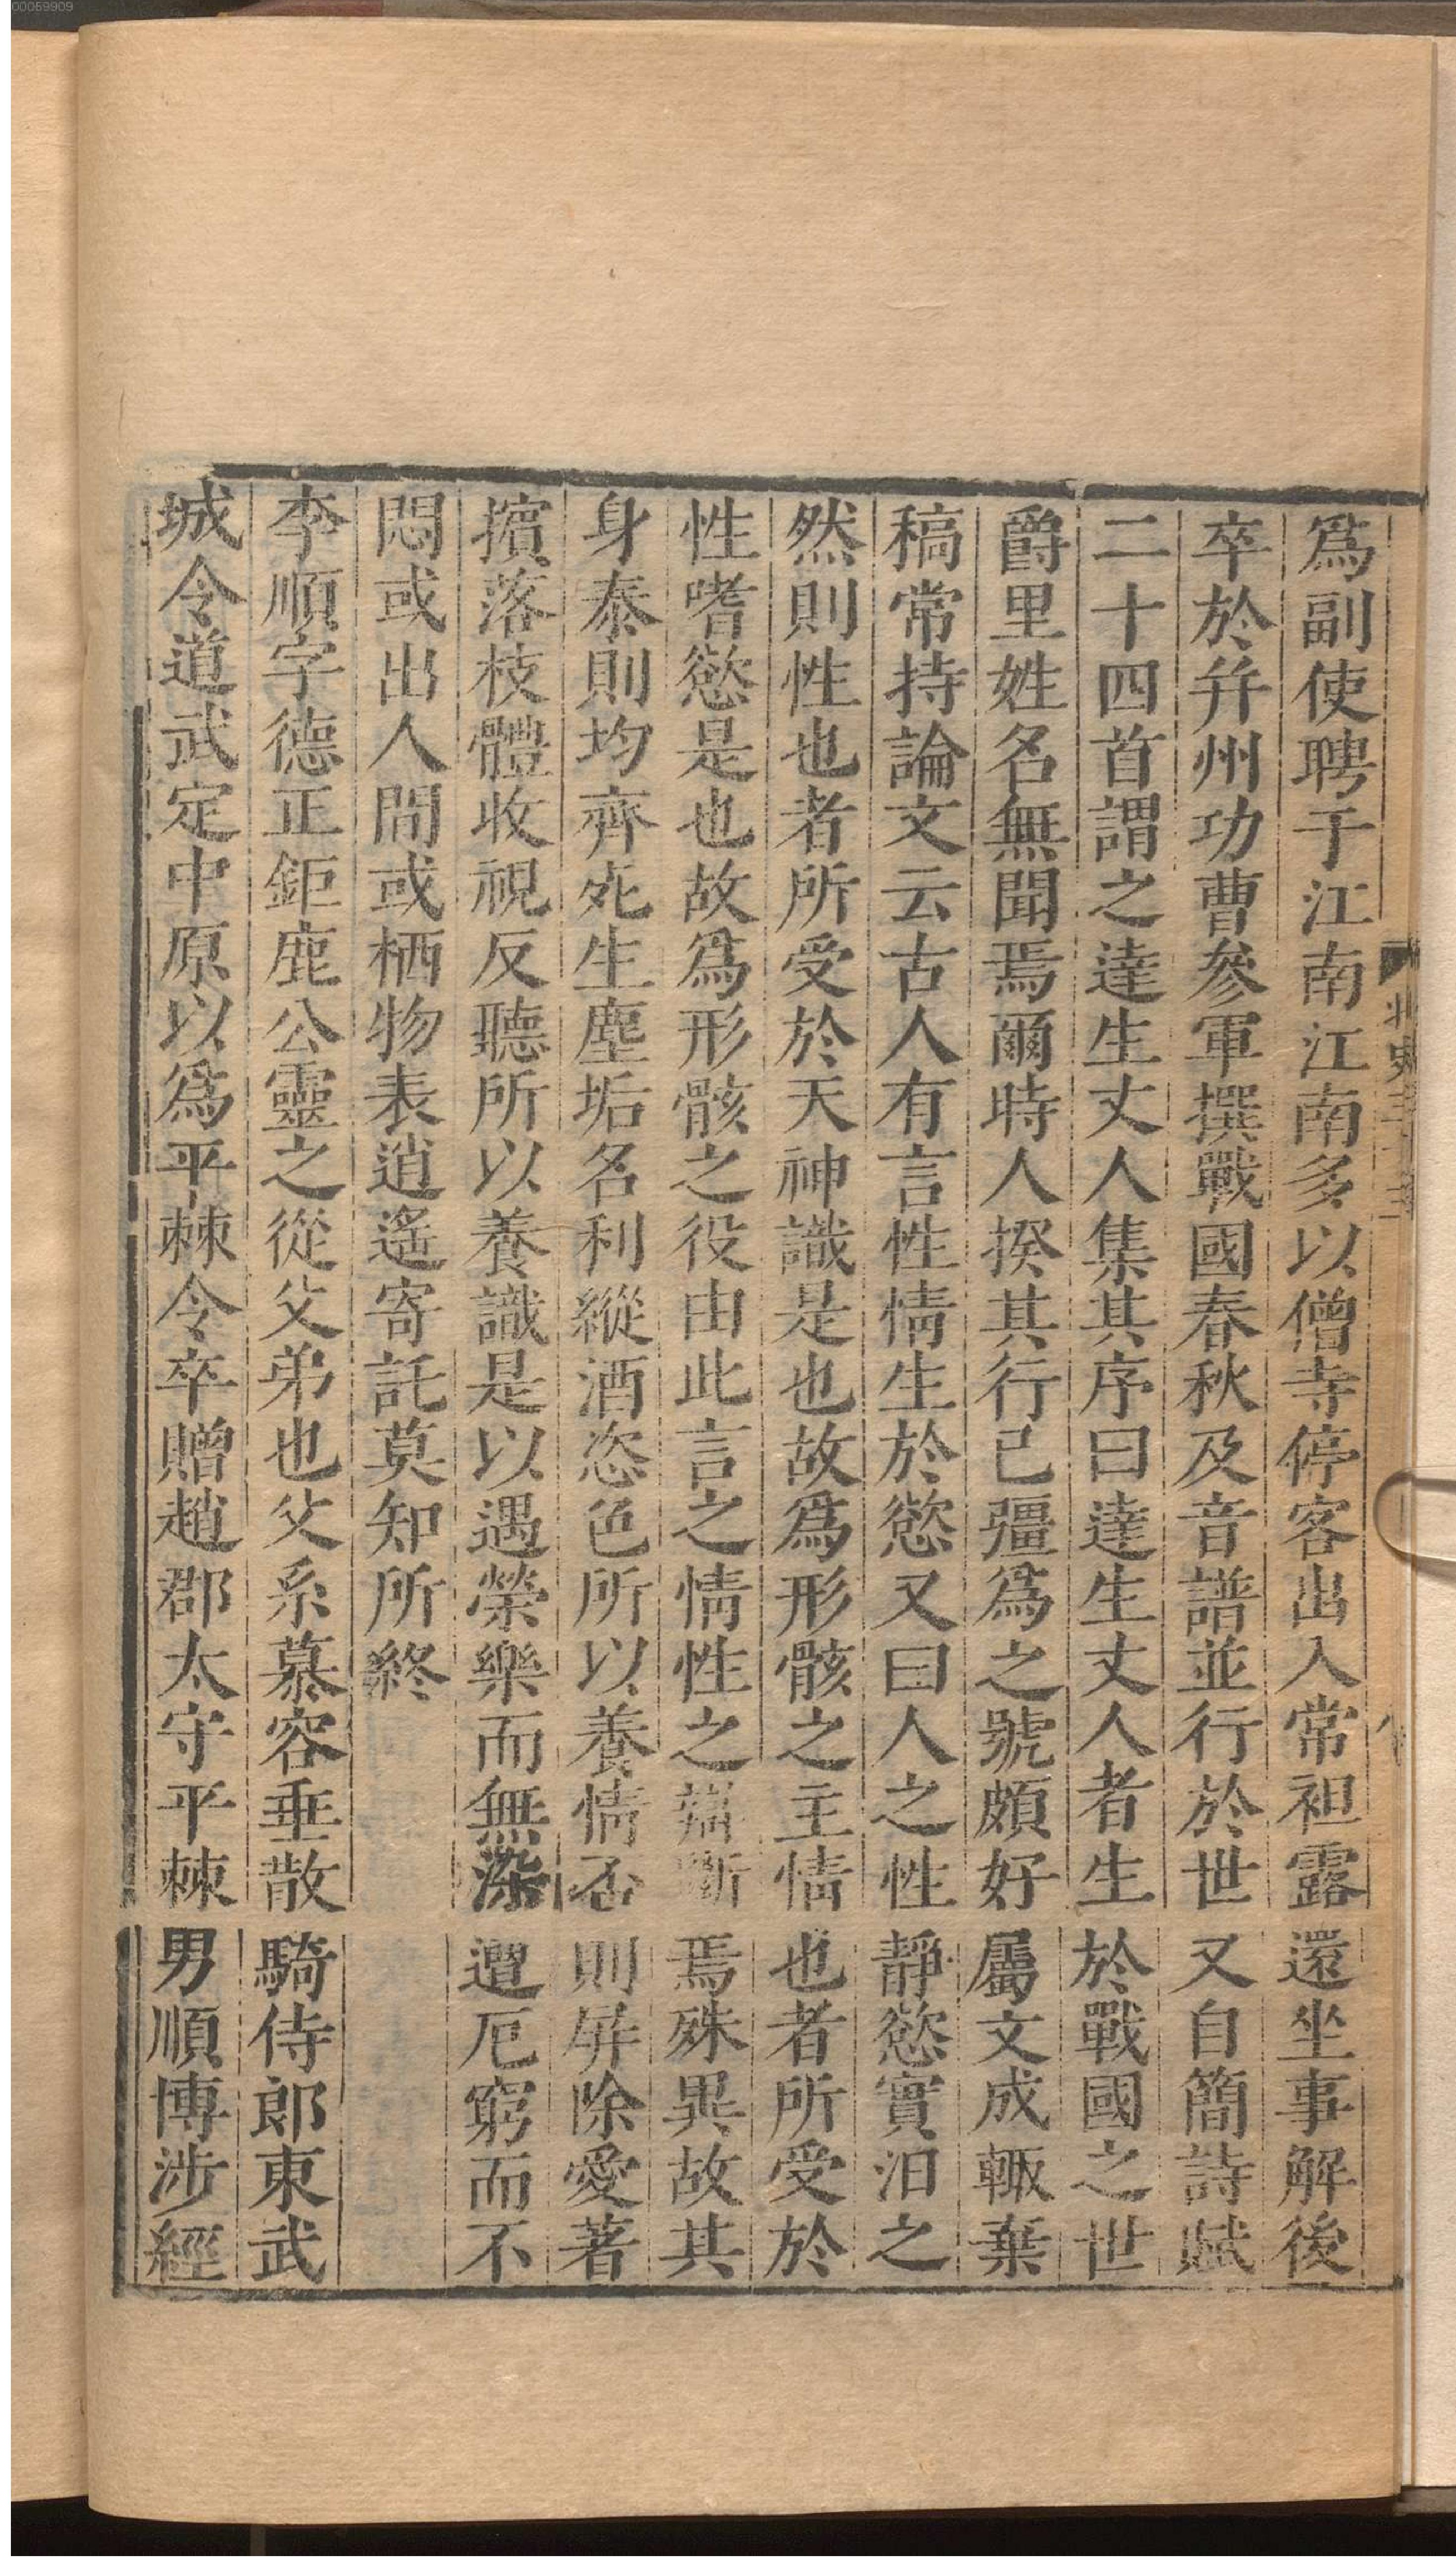 00059909
爲副使聘于江南江南多以僧寺停客出入常袒露還坐事解後
卒於幷州功曹參軍撰戰國春秋及音譜並行於世又自簡詩賦
二十四首謂之達生丈人集其序曰達生丈人者生於戰國之世
爵里姓名無聞焉爾時人揆其行己彊爲之號頗好屬文成輒棄
稿常持論文云古人有言性情生於慾又曰人之性靜慾實汨之
然則性也者所受於天神識是也故爲形骸之主情也者所受於
性嗜慾是也故爲形骸之役由此言之情性之辯斷焉殊異故其
身泰則均齊死生塵垢名利縱酒恣色所以養情否則屏除愛著
擯落枝體收視反聽所以養識是以遇榮樂而無染遭厄窮而不
悶或出人間或栖物表逍遙寄託莫知所終
李順字德正鉅鹿公靈之從父弟也父系慕容垂散騎侍郎東武
城令道武定中原以爲平棘令卒贈趙郡太守平棘男順博涉經
北史三十三